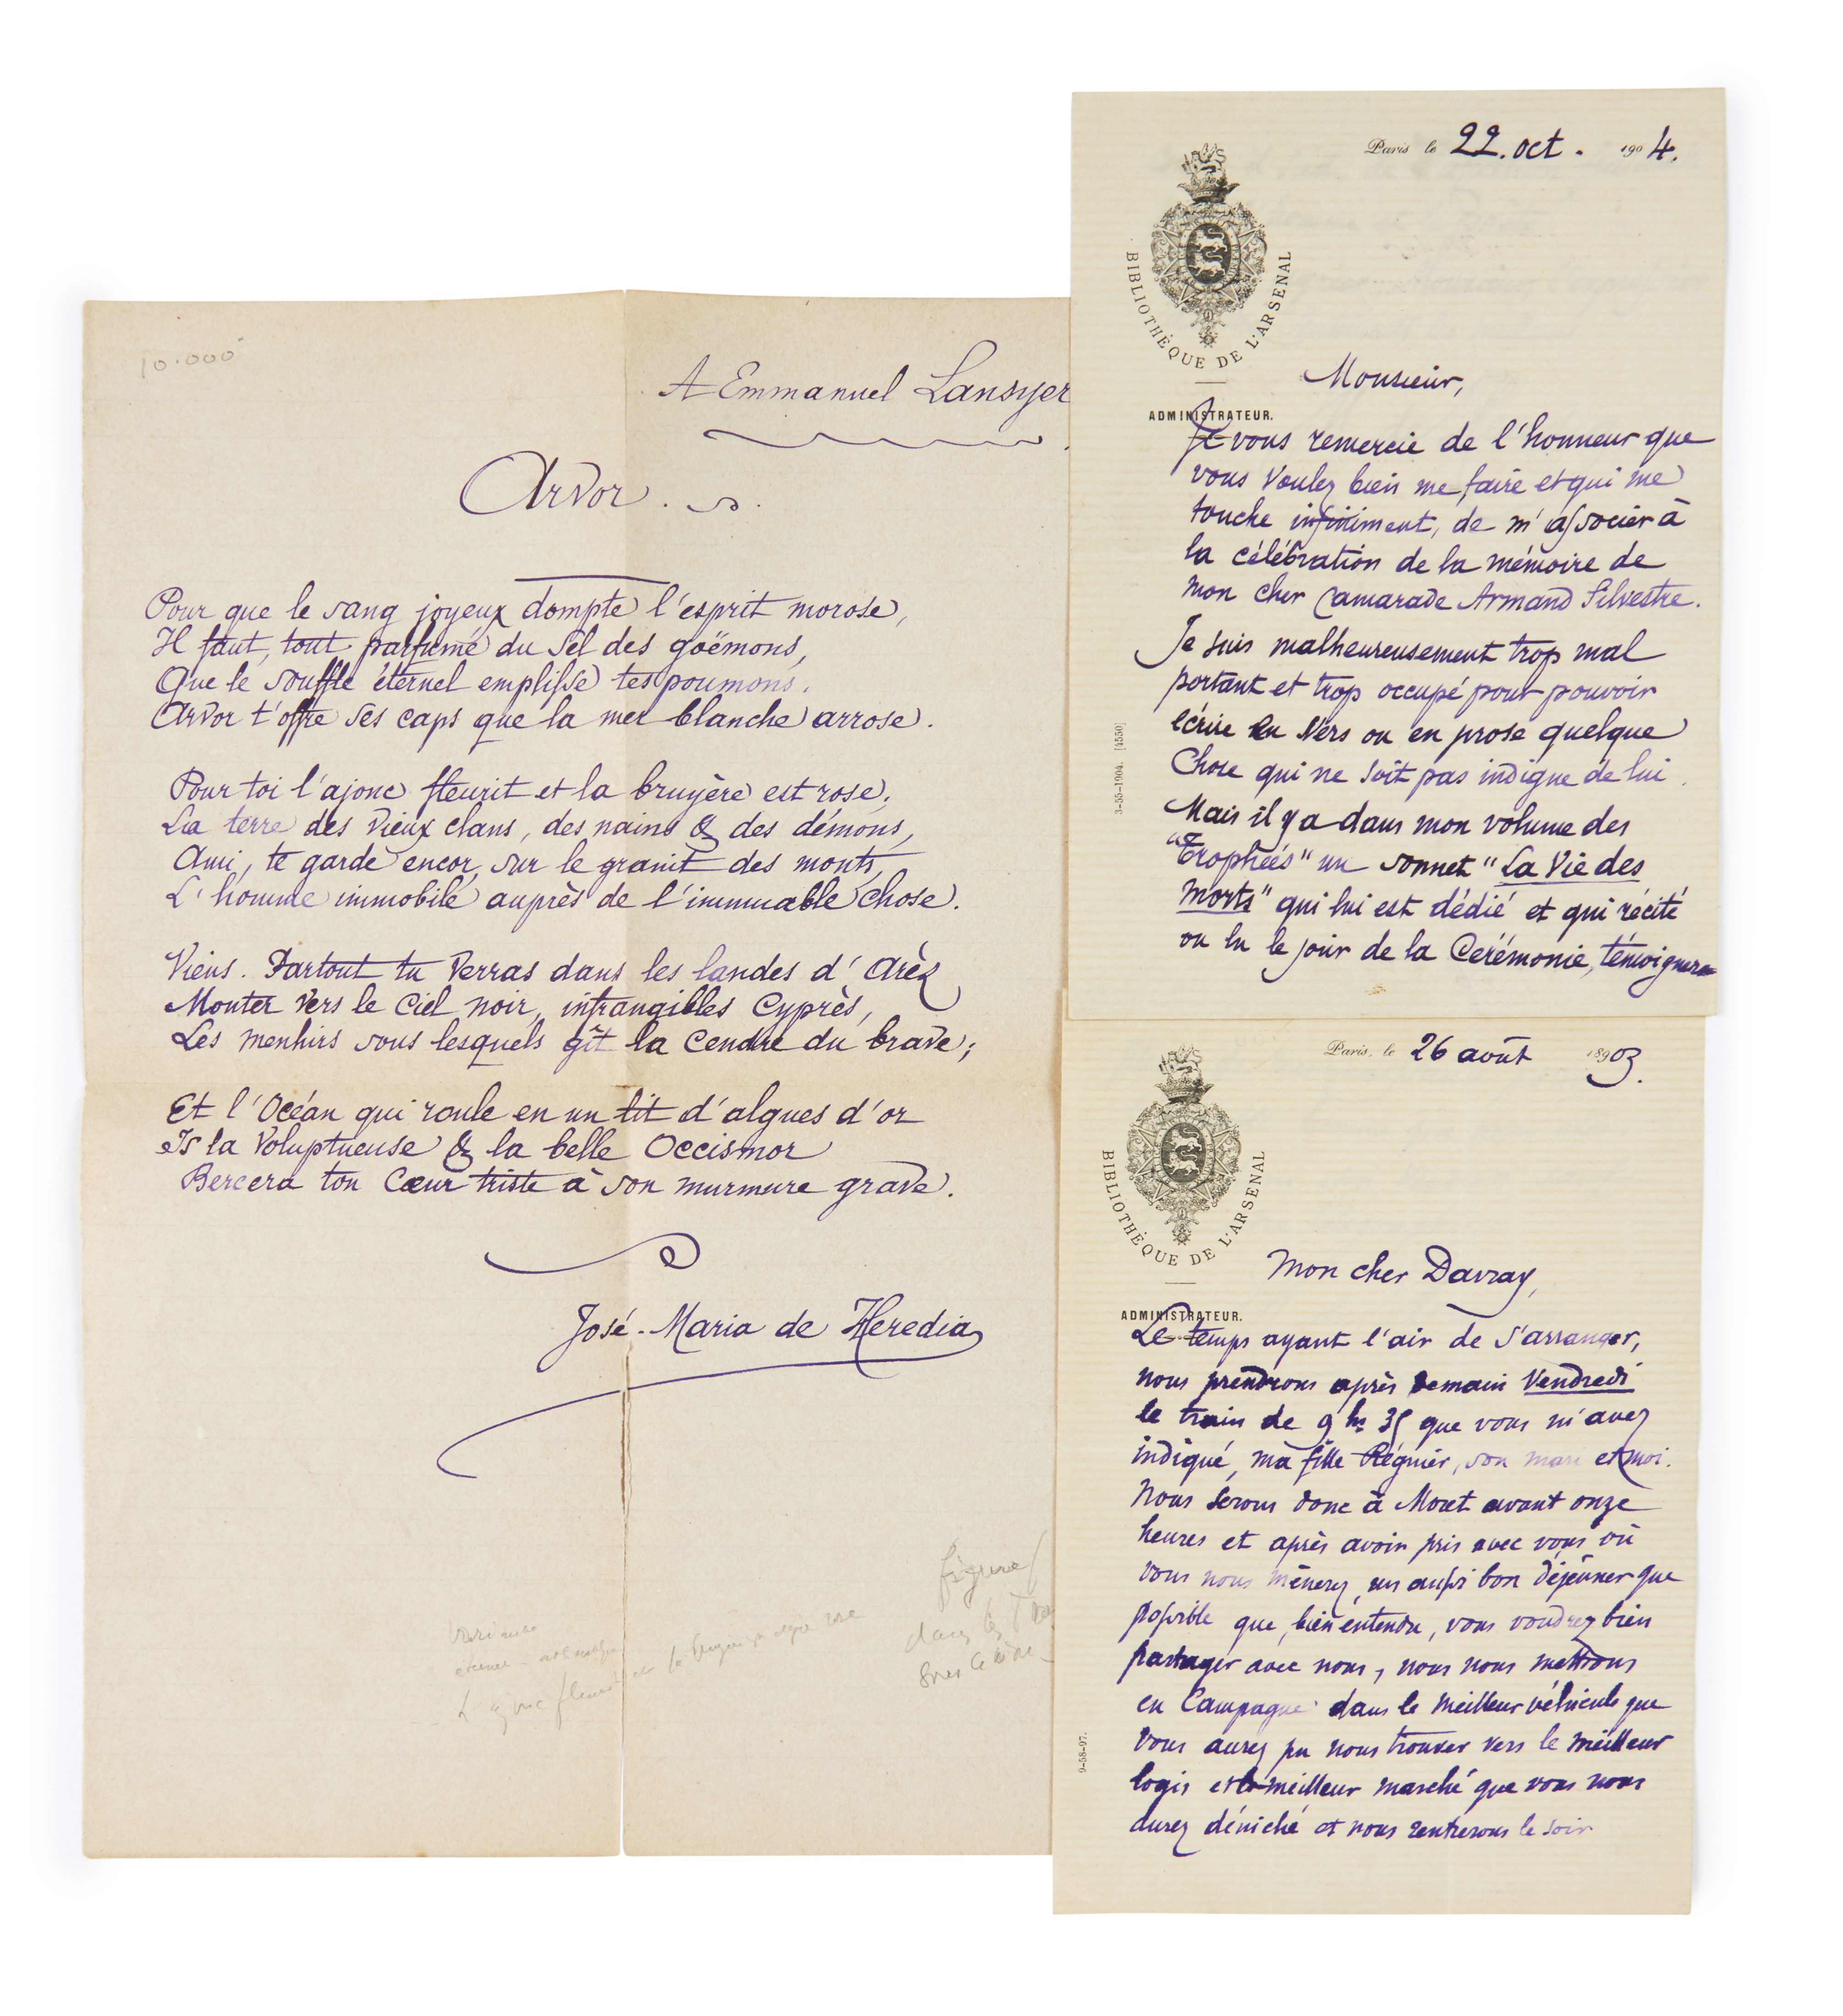 10.000
A Emmanuel Lansyer
Arvor.
Pour que le sang joyeux dompte l'esprit morose,
Il faut, tout parfumé du sel des goëmons,
Que le souffle éternel emplisse tes poumons.
Arvor t'offre ses caps que la mer blanche arrose.
Pour toi l'ajonc fleurit et la bruyère est rose.
La terre des vieux clans, des nains & des démons,
Ami, te garde encor, sur le granit des monts,
L'homme immobile auprès de l'immuable chose.
Viens. Partout tu verras dans les landes d'Arèz
Monter vers le ciel noir, infrangibles cyprès,
Les menhirs sous lesquels gît la cendre du brave;
Et l'Océan qui roule en un lit d'algues d'or
Is la voluptueuse & la belle Occismor
Bercera ton cœur triste à son murmure grave.
José-Maria de Heredia
figure
dans les
Paris le 22. oct. 1904.
BIBLIOTHÈQUE DE L'ARSENAL
ADMINISTRATEUR.
Monsieur,
Je vous remercie de l'honneur que
vous voulez bien me faire et qui me
touche infiniment, de m'associer à
la célébration de la mémoire de
mon cher camarade Armand Silvestre.
Je suis malheureusement trop mal
portant et trop occupé pour pouvoir
écrire en vers ou en prose quelque
chose qui ne soit pas indigne de lui.
Mais il y a dans mon volume des
"Trophées" un sonnet "La Vie des
Morts" qui lui est dédié et qui récité
ou lu le jour de la Cérémonie, témoignera
3-55-1904. [4550]
Paris, le 26 août 1903.
BIBLIOTHÈQUE DE L'ARSENAL
ADMINISTRATEUR.
Mon cher Davray,
Le temps ayant l'air de s'arranger,
nous prendrons après demain Vendredi
le train de 9 hs 35 que vous m'avez
indiqué, ma fille Régnier, son mari et moi.
Nous serons donc à Moret avant onze
heures et après avoir pris avec vous où
vous nous mènerez, un aussi bon déjeuner que
possible que, bien entendu, vous voudrez bien
partager avec nous, nous nous mettrons
en campagne dans le meilleur véhicule que
vous aurez pu nous trouver vers le meilleur
logis et le meilleur marché que vous nous
aurez déniché et nous rentrerons le soir
9-58-97.